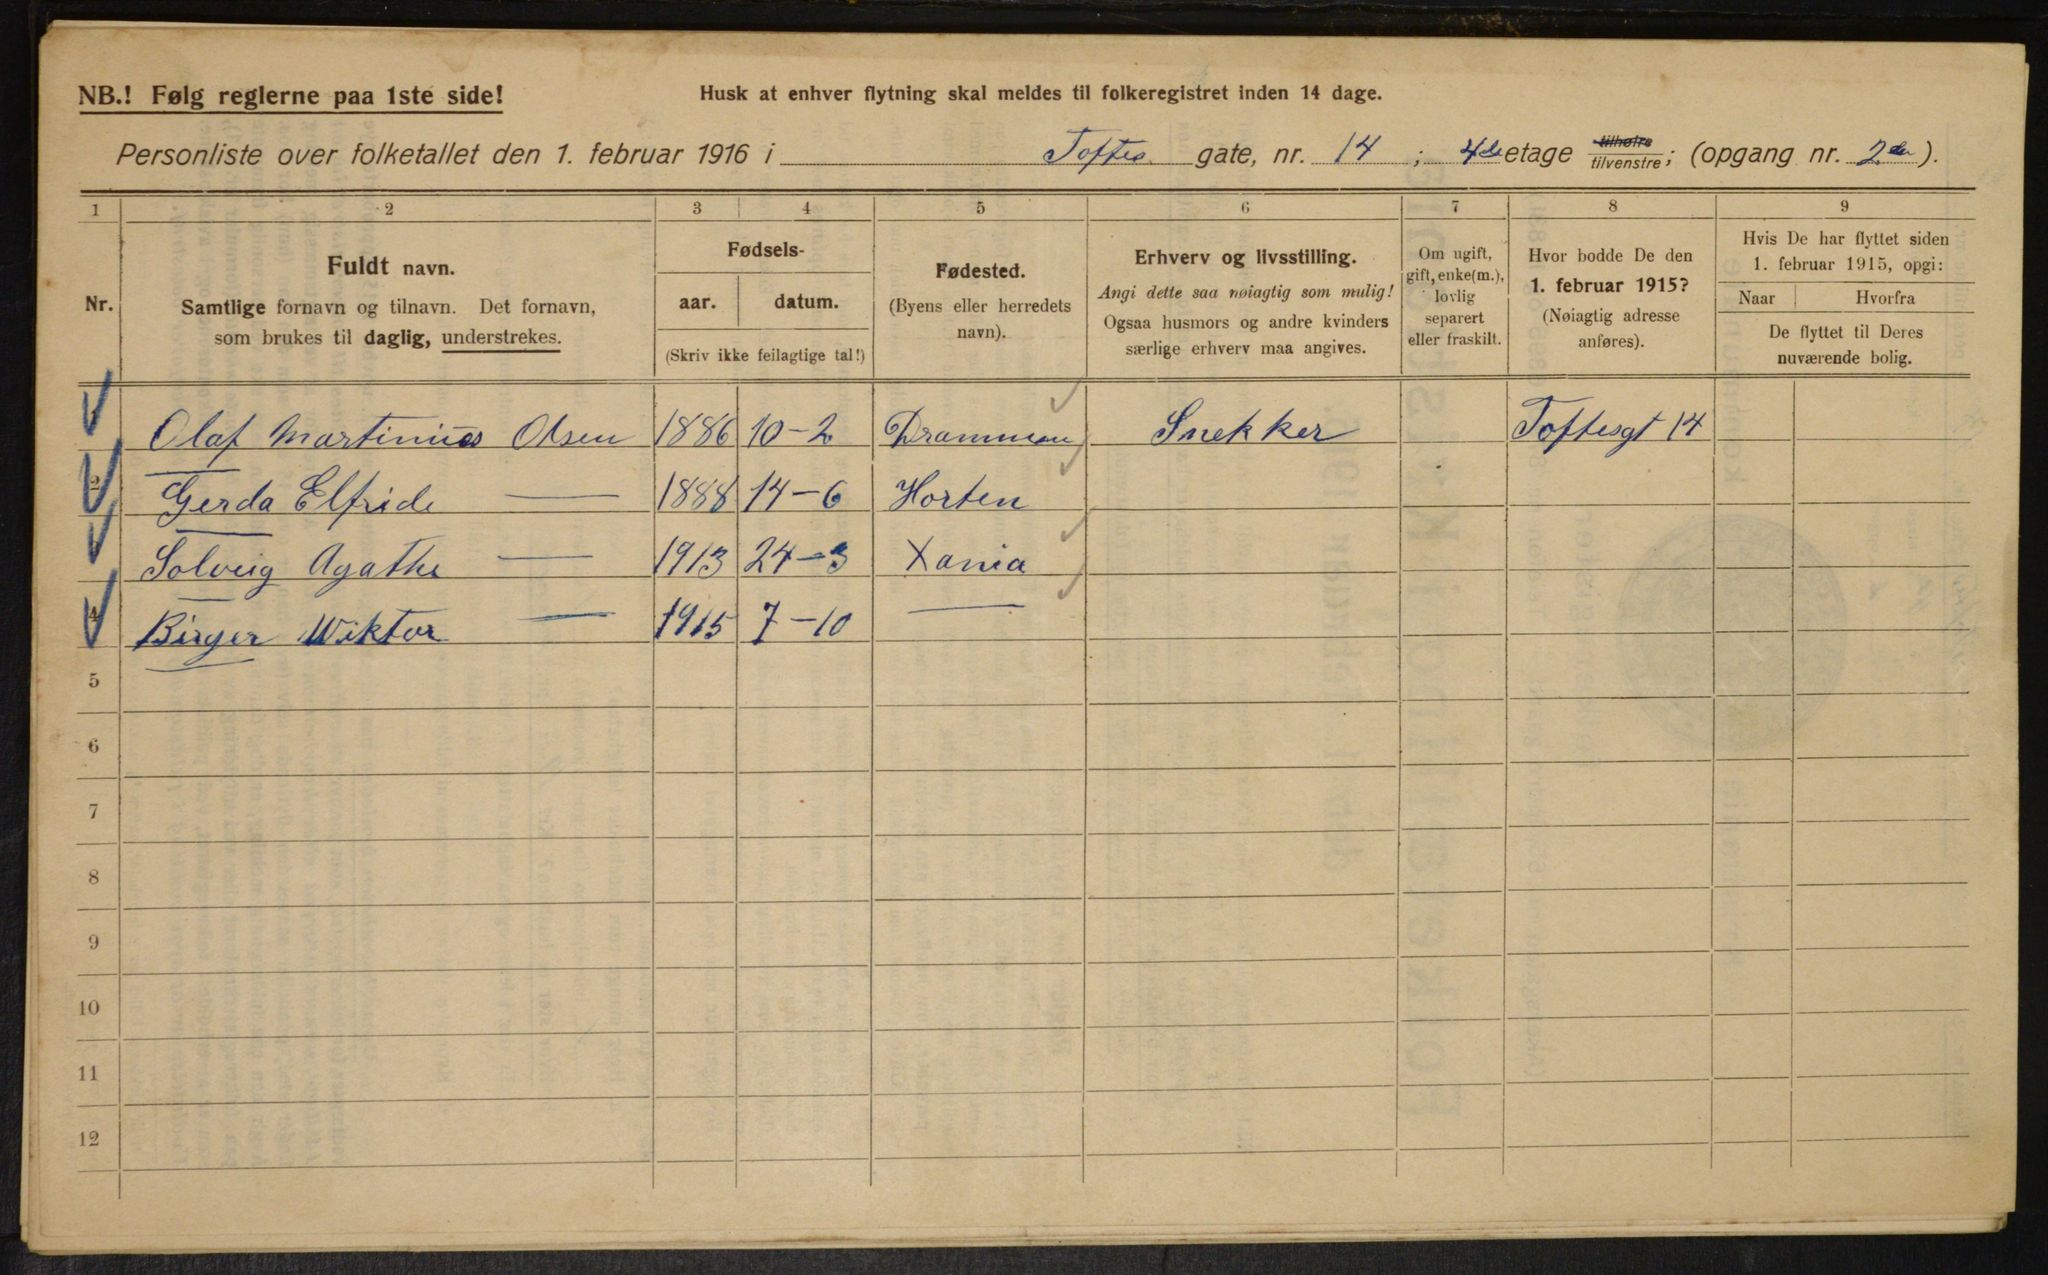 NB.! Følg reglerne paa 1ste side!
Husk at enhver flytning skal meldes til folkeregistret inden 14 dage.
Personliste over folketallet den 1. februar 1916 i Toftes gate, nr. 14 ; 4de etage tilhøire tilvenstre; (opgang nr. 2den ).
1 2 3 4 5 6 7 8 9
Nr.
Fuldt navn.
Samtlige fornavn og tilnavn. Det fornavn,
som brukes til daglig, understrekes.
Fødsels-
aar. datum.
(Skriv ikke feilagtige tal!)
Fødested.
(Byens eller herredets
navn).
Erhverv og livsstilling.
Angi dette saa nøiagtig som mulig!
Ogsaa husmors og andre kvinders
særlige erhverv maa angives.
Om ugift,
gift, enke(m.),
lovlig
separert
eller fraskilt.
Hvor bodde De den
1. februar 1915?
(Nøiagtig adresse
anføres).
Hvis De har flyttet siden
1. februar 1915, opgi:
Naar Hvorfra
De flyttet til Deres
nuværende bolig.
1 Olaf Martinius Olsen 1886 10-2 Drammen Snekker Toftesgt 14
2 Gerda Elfride — 1888 14-6 Horten
Solveig Agathe — 1913 24-3 Xania
4 Birger Wiktor — 1915 7-10 —
5
6
7
8
9
10
11
12